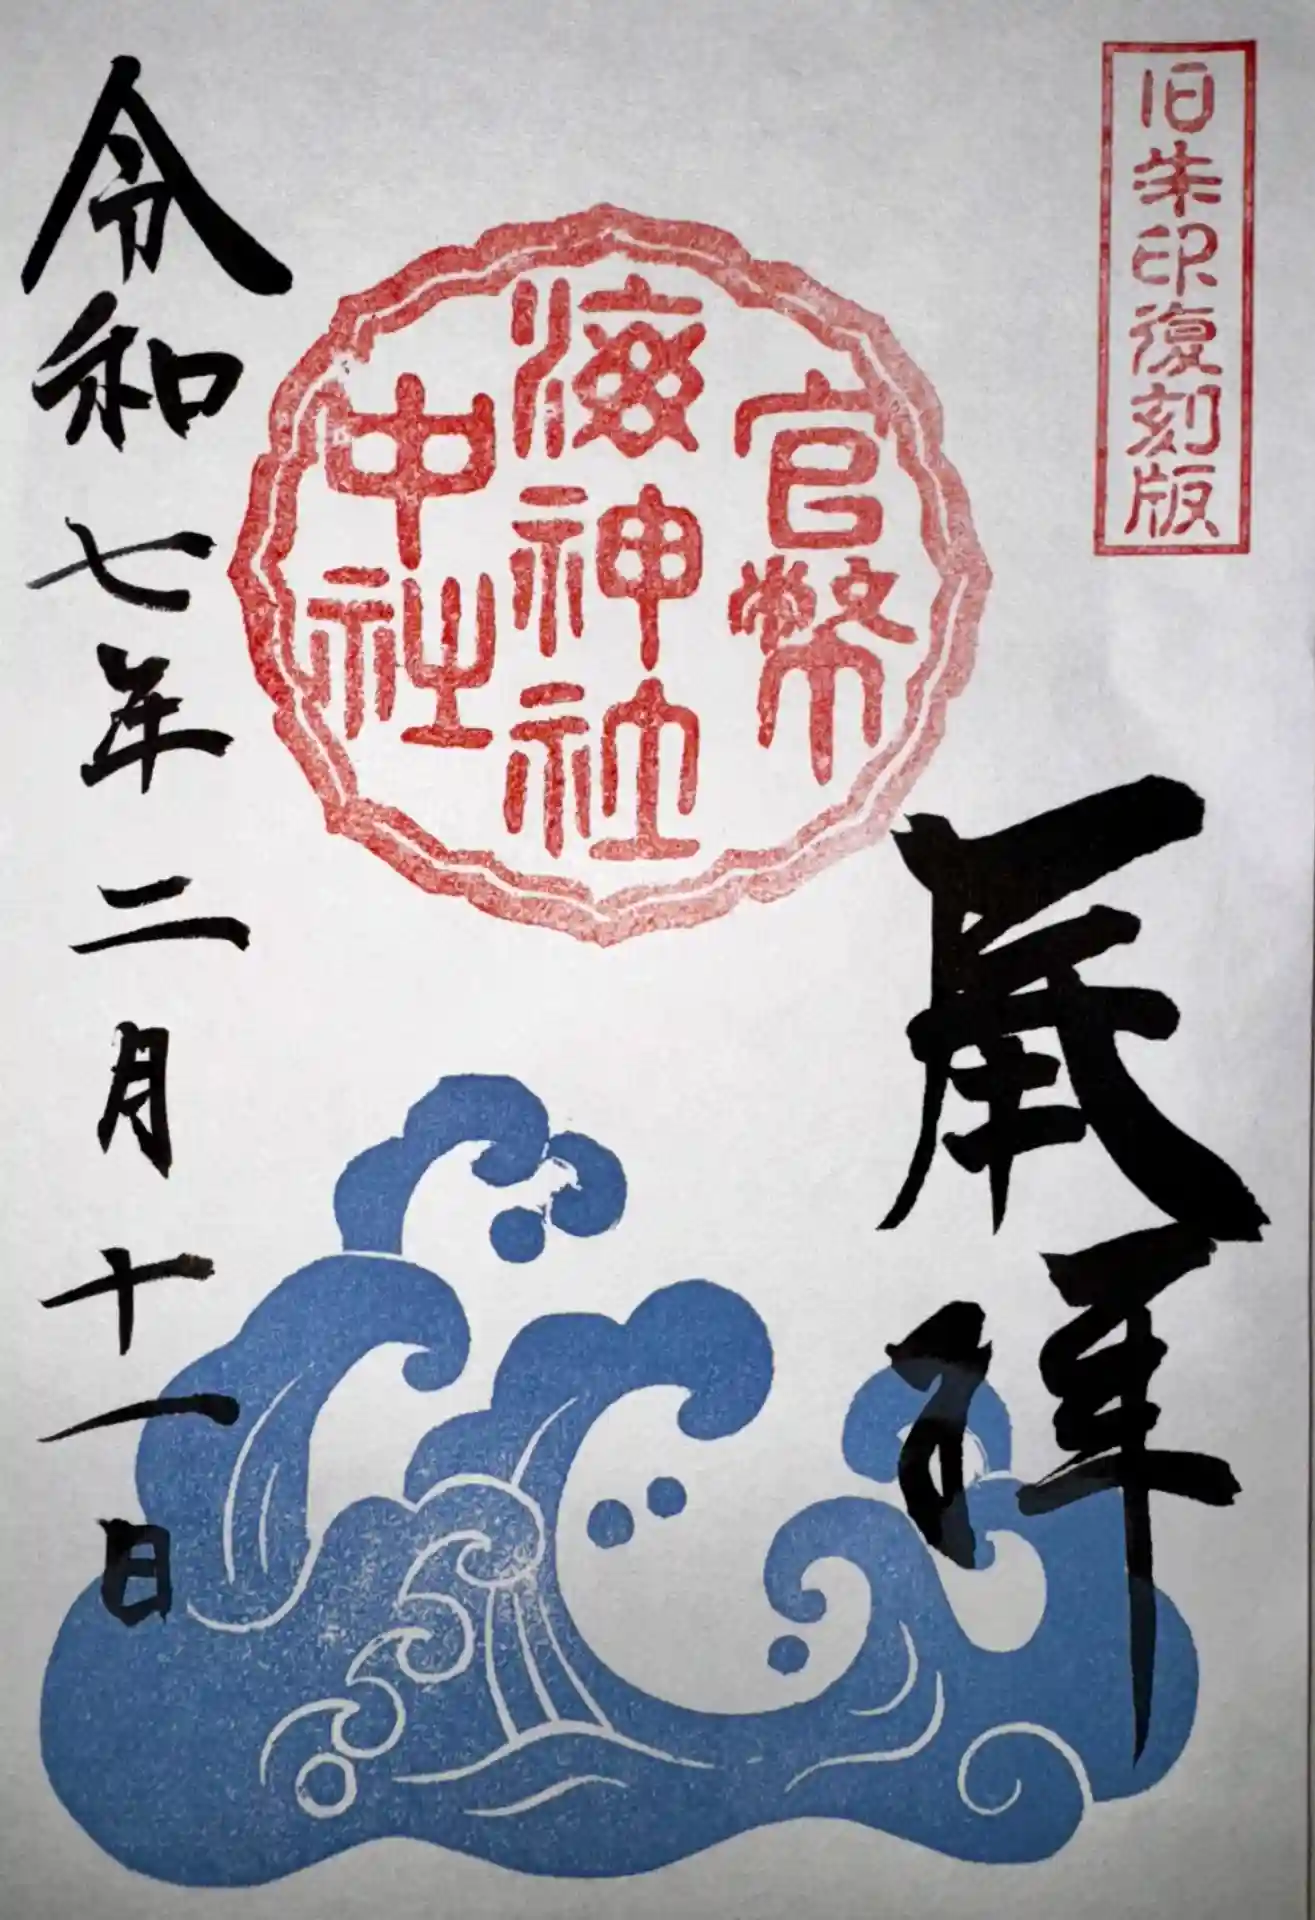 旧朱印復刻版
拝
官幣
海神社
中社
令和七年二月十一日